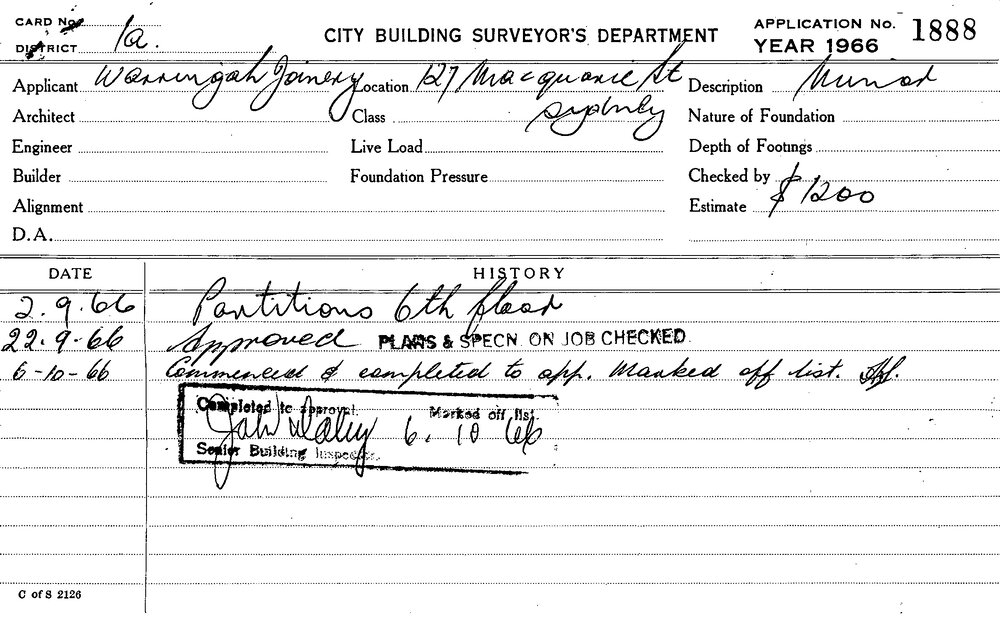 CARD No.
DISTRICT 1a.
CITY BUILDING SURVEYOR'S DEPARTMENT
APPLICATION No. 1888
YEAR 1966
Applicant Warringah Joinery Location 127 Macquarie St Description Minor
Architect Class Sydney Nature of Foundation
Engineer Live Load Depth of Footings
Builder Foundation Pressure Checked by
Alignment Estimate $1200
D.A.
DATE HISTORY
2.9.66 Partitions 6th floor
22.9-66 Approved PLANS & SPECN. ON JOB CHECKED.
6-10-66 Commenced & completed to app. Marked off list.
Completed to approval. Marked off list.
John Daley 6.10 66
Senior Building Inspector.
C of S 2126